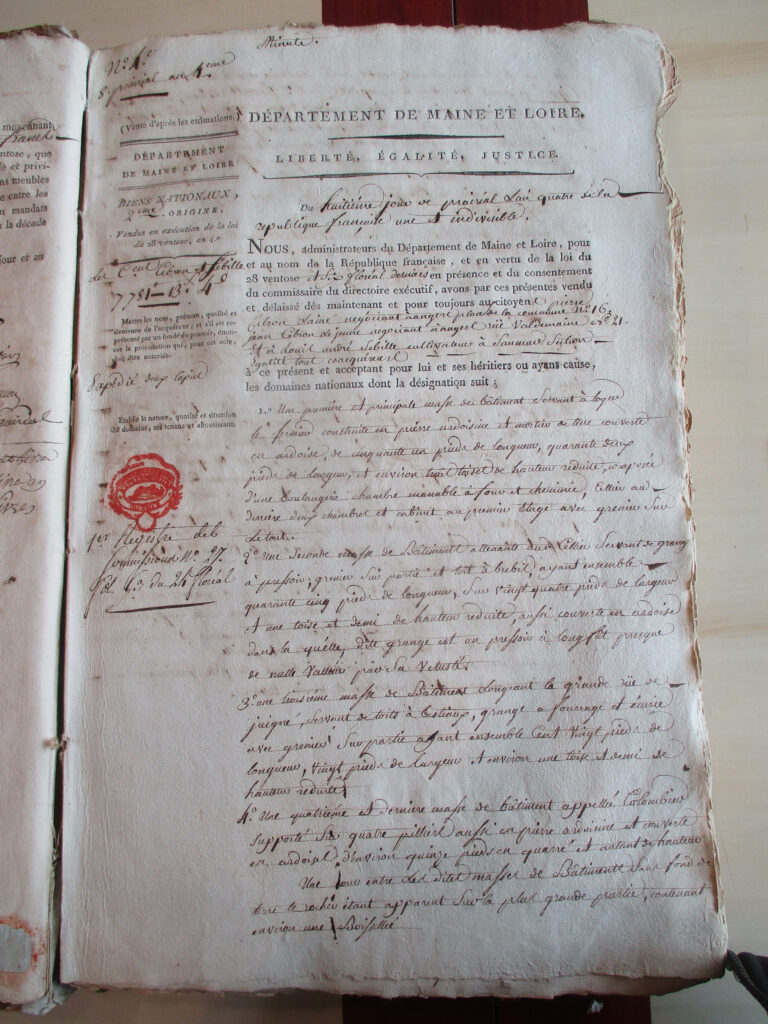 moyennant
ventose, que
e et privi-
ns meubles
entre les
n mandats
la décade
jour et an
Minute.
N.o 4.o
8. prairial an 4.eme
(Vente d'après les estimations.)
DÉPARTEMENT
DE MAINE ET LOIRE
BIENS NATIONAUX,
2.eme ORIGINE,
Vendus en exécution de la loi
du 28 ventose, an 4.e
Les C.ens Cebron et Sebille
7781 - 13 . 4.o
Mettre les nom, prénom, qualité et
demeure de l'acquéreur; et s'il est re-
présenté par un fondé de pouvoir, énon-
cer la procuration qui, pour cet acte,
doit être notariée.
Expédié deux copies
Etablir la nature, quotité et situation
du domaine, ses tenans et aboutissans.
1.er Registre des
Soumissions N.o 27.
du 25 floréal
DÉPARTEMENT DE MAINE ET LOIRE.
LIBERTÉ, ÉGALITÉ, JUSTICE.
Du huitième jour de prairial L'an quatre de la
republique française une et indivisible.
NOUS, administrateurs du Département de Maine et Loire, pour
et au nom de la République française, et en vertu de la loi du
28 ventose et Six floréal derniers en présence et du consentement
du commissaire du directoire exécutif, avons par ces présentes vendu
et délaissé dès maintenant et pour toujours au citoyens pierre
Cebron L'ainé negociant a angers place de la commune N.o 16,
jean Cebron le jeune negociant a angers rüe Valdemaine N.o 21.
Et à Louis andré Sebille cultivateur à Saumur Section
égalité tous coacquéreurs
à ce présent et acceptant pour lui et ses héritiers ou ayant cause,
les domaines nationaux dont la désignation suit;
1.o Une première et principale masse de bâtiment Servant à loger
le fermier construite en pierre ardoisine et mortier de terre couverte
en ardoise, de cinquante un pieds de longueur, quarante deux
pieds de largeur, et environ trois toises de hauteur réduite, composée
d'une boulangerie chambre manable à four et cheminée, Cellier au
derrière deux chambres et cabinet au premier Etage avec grenier Sur
Le tout.
2.o Une Seconde masse de Bâtiments attenante audit Cellier Servant de grange
à pressoir, grenier Sur partie et toit à brebis, ayant ensemble
quarante cinq pieds de longueur, Sur vingt quatre pieds de largeur
et une toise et demi de hauteur reduite, aussi couverte en ardoise
dans la quelle dite grange est un pressoir à long fût presque
de nulle Valleur par Sa Vetusté.
3.o une troisième masse de Bâtiments Longeant la grande rüe de
juigné, servant de toits à bestiaux, grange a fourrage et écurie
avec grenier Sur partie ayant ensemble Cent Vingt pieds de
longueur, Vingt pieds de Largeur et environ une toise et demi de
hauteur reduite
4.o Une quatrième et dernière masse de bâtiment appellée Colombier
Supporté Sur quatre pilliers aussi en pierre ardoisine et couverte
en ardoise, d'environ quinze pieds en quarré et autant de hauteur
Une Cour entre Les dites masses de Bâtiments Sans fond de
terre le rocher étant apparent Sur la plus grande partie, contenant
environ une Boisselée